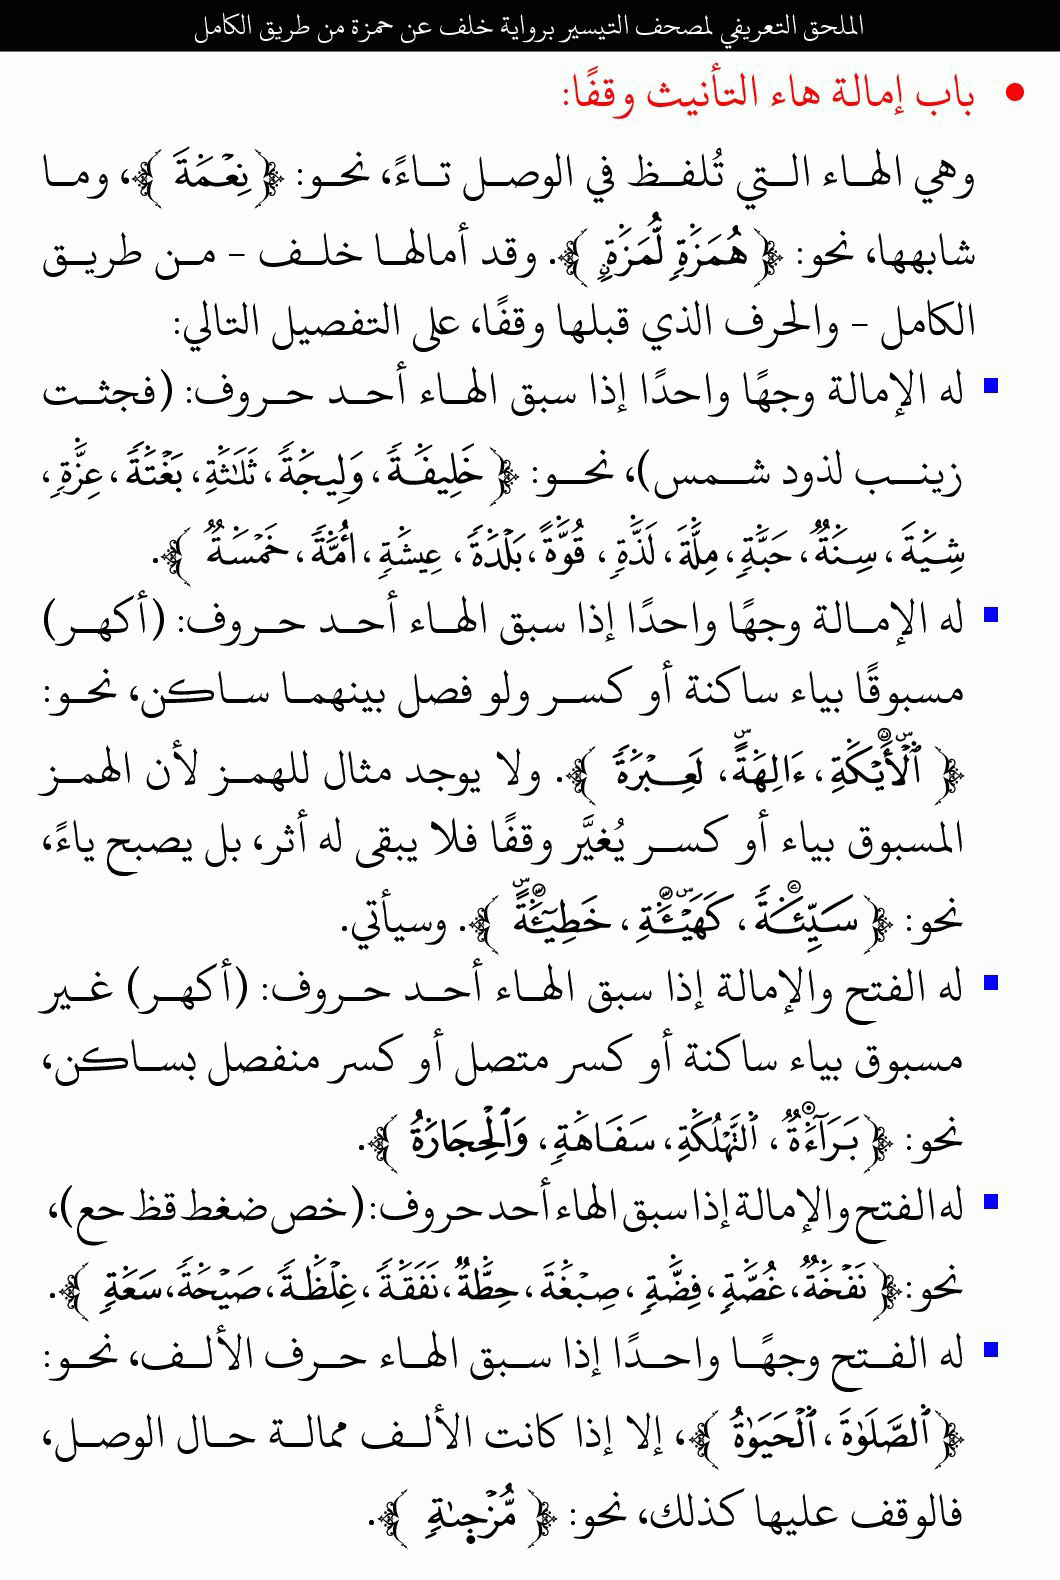 الملحق التعريفي لمصحف التيسير برواية خلف عن حمزة من طريق الكامل
• باب إمالة هاء التأنيث وقفًا:
وهي الهاء التي تُلفظ في الوصل تاءً، نحو: ﴿نِعْمَةَ﴾، وما
شابهها، نحو: ﴿هُمَزَةٍ لُّمَزَةٍ﴾. وقد أمالها خلف - من طريق
الكامل - والحرف الذي قبلها وقفًا، على التفصيل التالي:
له الإمالة وجهًا واحدًا إذا سبق الهاء أحد حروف: (فجثت
زينب لذود شمس)، نحو: ﴿خَلِيفَةً، وَلِيجَةً، ثَلَٰثَةِ، بَغْتَةً، عِزَّةٍ،
شِيَةَ، سِنَةٌ، حَبَّةٍ، مِلَّةَ، لَذَّةٍ، قُوَّةً، بَلْدَةً، عِيشَةٍ، أُمَّةً، خَمْسَةٌ﴾.
له الإمالة وجهًا واحدًا إذا سبق الهاء أحد حروف: (أكهر)
مسبوقًا بياء ساكنة أو كسر ولو فصل بينهما ساكن، نحو:
﴿ٱلْأَيْكَةِ، ءَالِهَةً، لَعِبْرَةً﴾. ولا يوجد مثال للهمز لأن الهمز
المسبوق بياء أو كسر يُغيَّر وقفًا فلا يبقى له أثر، بل يصبح ياءً،
نحو: ﴿سَيِّئَةً، كَهَيْـَٔةِ، خَطِيٓـَٔةً﴾. وسيأتي.
له الفتح والإمالة إذا سبق الهاء أحد حروف: (أكهر) غير
مسبوق بياء ساكنة أو كسر متصل أو كسر منفصل بساكن،
نحو: ﴿بَرَآءَةٌ، ٱلتَّهْلُكَةِ، سَفَاهَةٍ، وَٱلْحِجَارَةُ﴾.
له الفتح والإمالة إذا سبق الهاء أحد حروف: (خص ضغط قظ حع)،
نحو: ﴿نَفْخَةٌ، غُصَّةٍ، فِضَّةٍ، صِبْغَةَ، حِطَّةٌ، نَفَقَةً، غِلْظَةً، صَيْحَةً، سَعَةٍ﴾.
له الفتح وجهًا واحدًا إذا سبق الهاء حرف الألف، نحو:
﴿ٱلصَّلَوٰةَ، ٱلْحَيَوٰةُ﴾، إلا إذا كانت الألف ممالة حال الوصل،
فالوقف عليها كذلك، نحو: ﴿مُّزْجِىٰةٍ﴾.